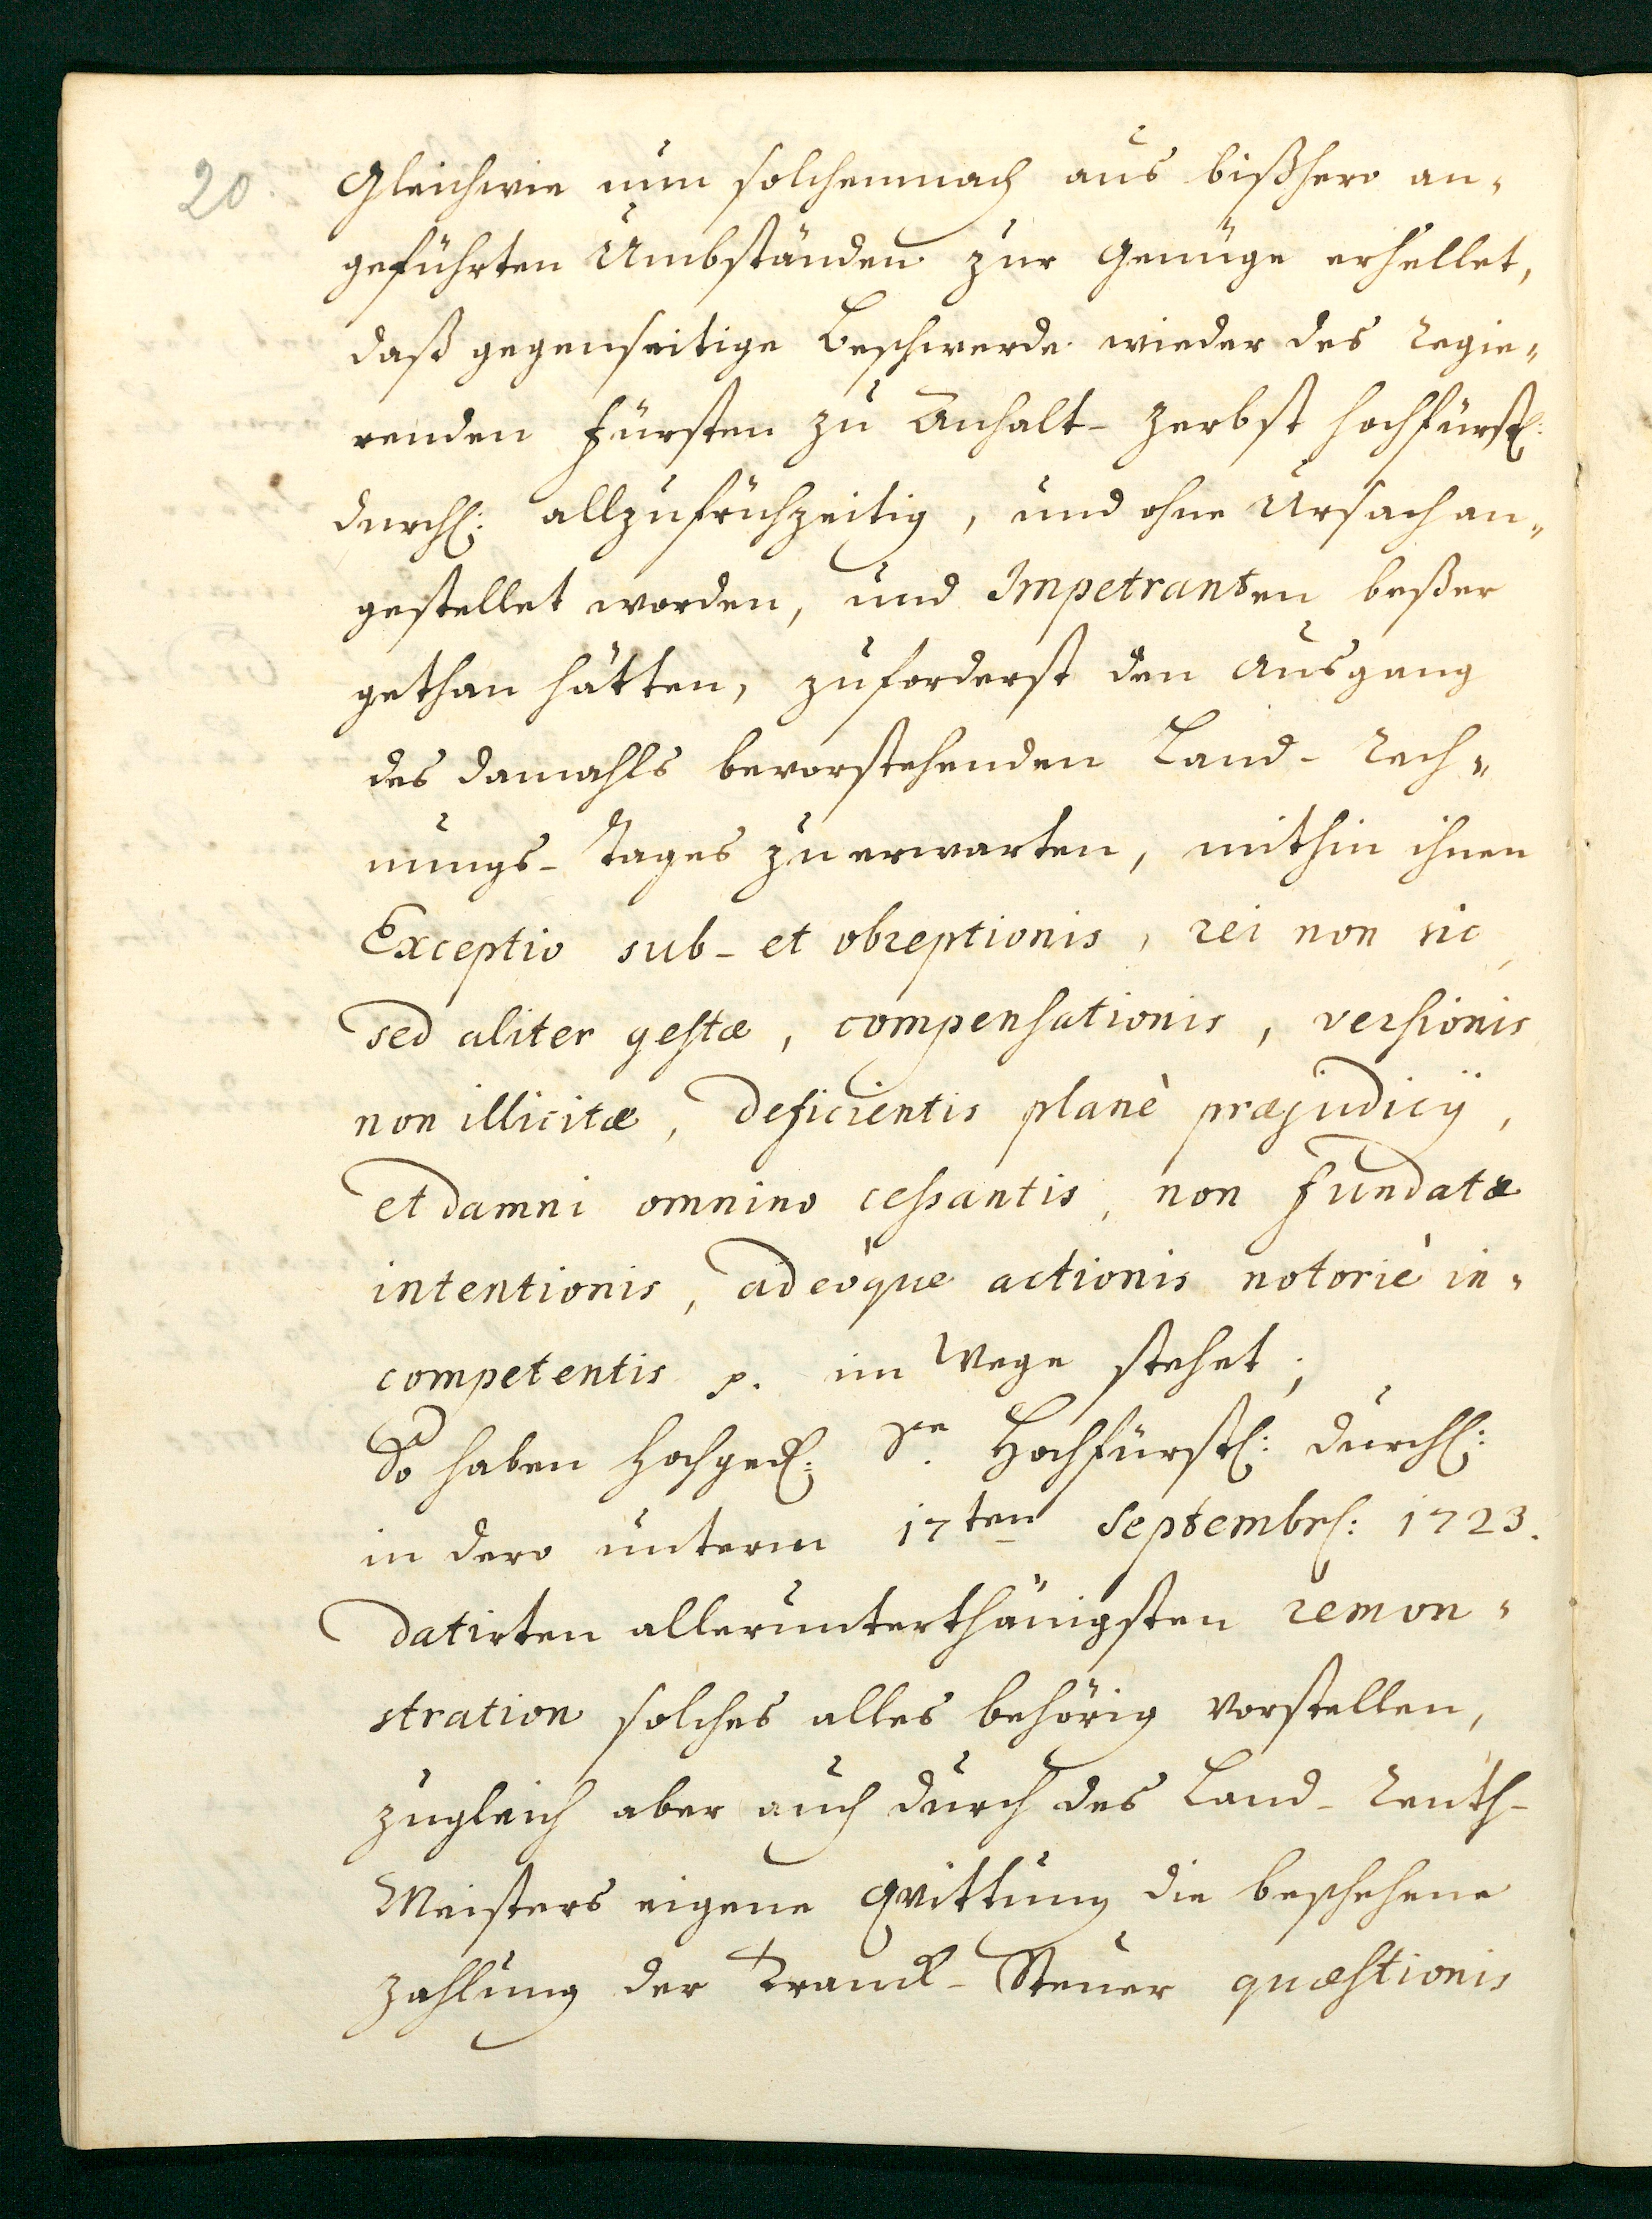 20
Gleichwie nun solchemnach aus bißhero an„
geführten Umbständen zur Genüge erhellet,
daß gegenseitige Beschwerde wieder des Regie„
renden Fürsten zu Anhalt-Zerbst Hochfürstl:
Durchl: allzufrühzeitig, und ohne Ursach an„
gestellet worden, und Impetranten beßer
gethan hätten, zuforderst den Ausgang
des damahls bevorstehenden Land-Rech„
nungs-Tages zu erwarten, mithin ihnen
Exceptio sub- et obreptionis, rei non sic,
sed aliter gestæ, compensationis, versionis
non illicitæ, deficientis planè præjudicij,
et damni omnino cessantis, non fundatæ
intentionis, adeòque actionis notoriè in„
competentis p. im Wege stehet;
So haben Hochged: Se. Hochfürstl: Durchl:
in dero unterm 17ten Septembr: 1723.
datirten allerunterthänigsten remon„
stration solches alles behörig vorstellen,
zugleich aber auch durch des Land-Renth-
Meisters eigene Qvittung die beschehene
Zahlung der Tranck-Steuer quæstionis